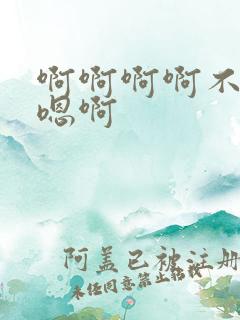 啊啊啊啊不
嗯啊
阿盖已被注册
未经同意禁止转载